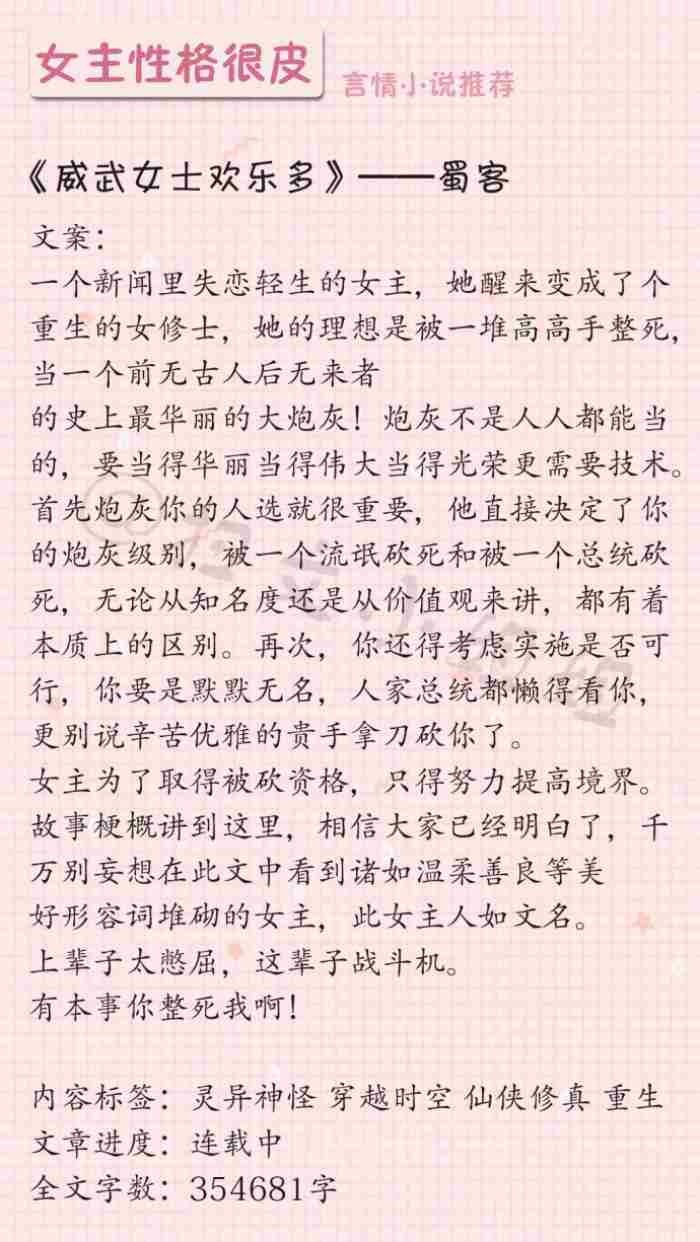 女主性格很皮
言情小说推荐
《威武女士欢乐多》——蜀客
文案：
一个新闻里失恋轻生的女主，她醒来变成了个
重生的女修士，她的理想是被一堆高高手整死，
当一个前无古人后无来者
的史上最华丽的大炮灰！炮灰不是人人都能当
的，要当得华丽当得伟大当得光荣更需要技术。
首先炮灰你的人选就很重要，他直接决定了你
的炮灰级别，被一个流氓砍死和被一个总统砍
死，无论从知名度还是从价值观来讲，都有着
本质上的区别。再次，你还得考虑实施是否可
行，你要是默默无名，人家总统都懒得看你，
更别说辛苦优雅的贵手拿刀砍你了。
女主为了取得被砍资格，只得努力提高境界。
故事梗概讲到这里，相信大家已经明白了，千
万别妄想在此文中看到诸如温柔善良等美
好形容词堆砌的女主，此女主人如文名。
上辈子太憋屈，这辈子战斗机。
有本事你整死我啊！
内容标签：灵异神怪 穿越时空 仙侠修真 重生
文章进度：连载中
全文字数：354681字